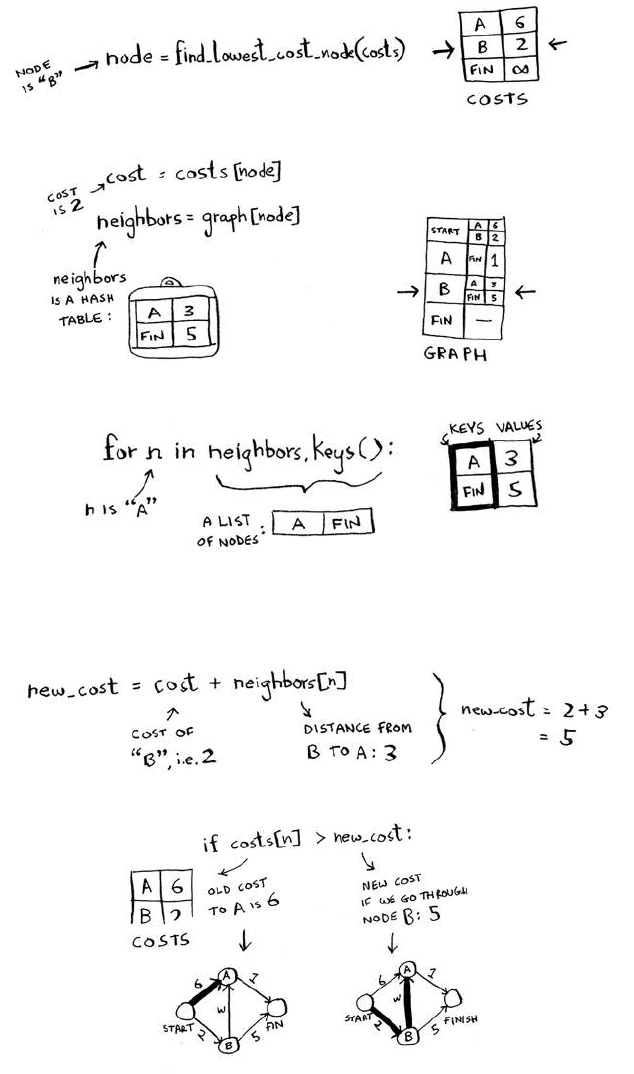 NODE IS "B"
node = find_lowest_cost_node(costs)
A 6
B 2
FIN ∞
COSTS
COST IS 2
cost = costs[node]
neighbors = graph[node]
neighbors
IS A HASH
TABLE:
A 3
FIN 5
START A 6
B 2
A FIN 1
B A 3
FIN 5
FIN —
GRAPH
for n in neighbors.keys():
n IS "A"
A LIST
OF NODES:
A FIN
KEYS VALUES
A 3
FIN 5
new_cost = cost + neighbors[n]
COST OF
"B", i.e. 2
DISTANCE FROM
B TO A: 3
new_cost = 2+3
= 5
if costs[n] > new_cost:
A 6
B 2
COSTS
OLD COST
TO A IS 6
NEW COST
IF WE GO THROUGH
NODE B: 5
6 A 1
3
START 2 B 5 FIN
6 A 1
3
START 2 B 5 FINISH